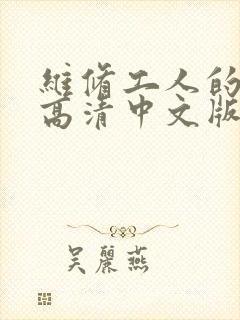 維修工人的
高清中文版
吳麗燕